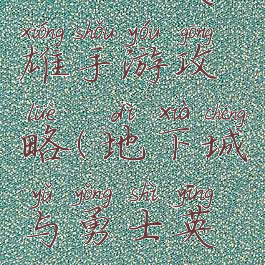 xiónɡ shǒu yóu ɡōnɡ
雄手游攻
lüè dì xià chénɡ
略(地下城
yǔ yǒnɡ shì yīnɡ
与勇士英